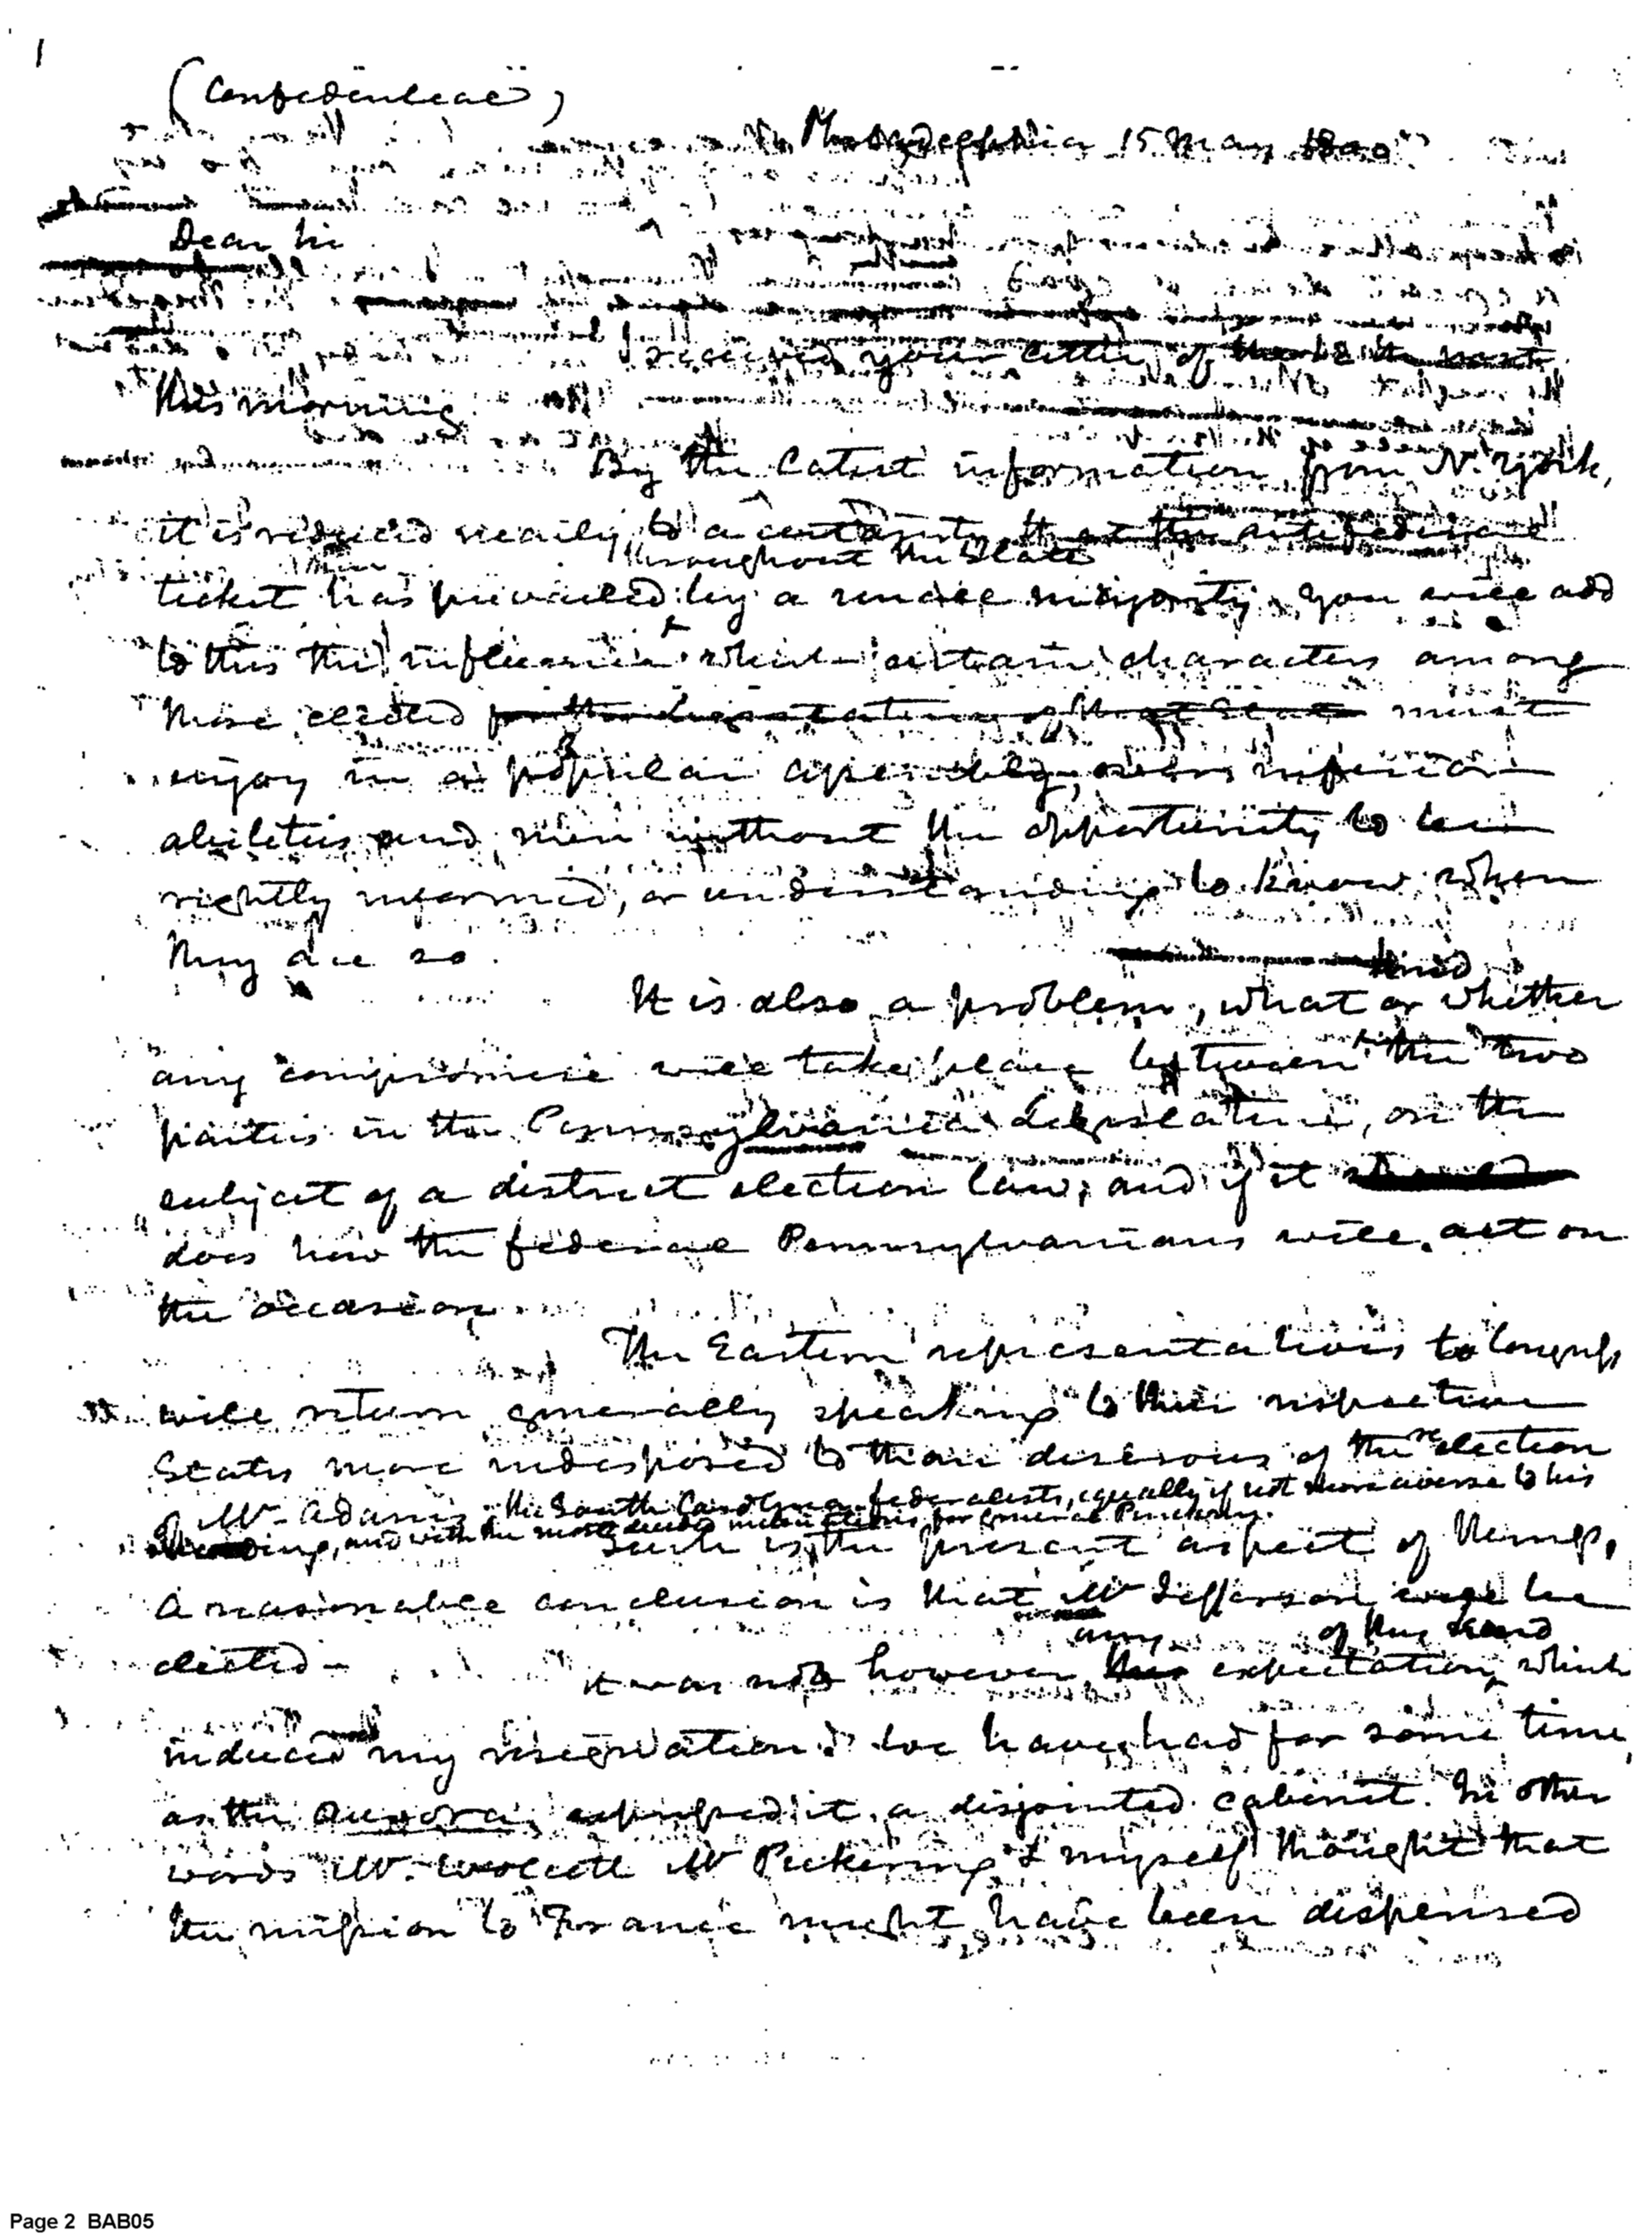 1
(Confidential)
Philadelphia 15 May 1800
Dear Sir
I received your letter of
this morning.
By the latest information from N. York,
it is reduced nearly to a certainty that the antifederal
throughout the State
ticket has prevailed by a small majority. You will add
to this the influence which certain characters among
those elected for the legislature of that State must
enjoy in a popular assembly, over inferior
abilities and men without the opportunity to be
rightly informed, or understanding to know when
they are so.
kind
It is also a problem, what or whether
any compromise will take place between the two
parties in the Pennsylvania Legislature, on the
subject of a district election law; and if it
does how the federal Pennsylvanians will act on
the occasion.
The Eastern representatives to Congress
will return generally speaking to their respective
States more indisposed to than desirous of the re election
of Mr. Adams. the South Carolina federalists, equally if not more averse to his
and with the most decided inclinations for General Pinckney.
Such is the present aspect of things,
A reasonable conclusion is that Mr Jefferson will be
any of this kind
elected - it was not however this expectation, which
induced my resignation. We have had for some time
as the Aurora expressed it, a disjointed cabinet. In other
words Mr. Wolcott Mr Pickering & myself thought that
the mission to France might have been dispensed
Page 2 BAB05